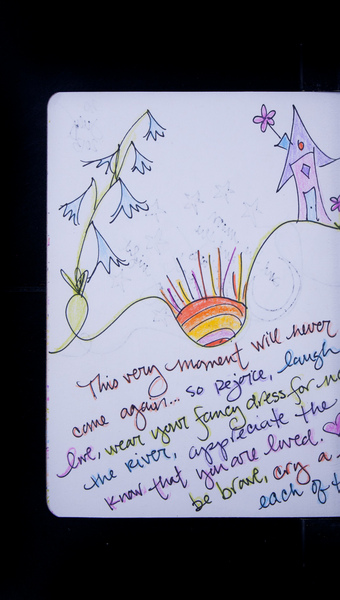 This very moment will never
come again... so rejoice, laugh
love, wear your fancy dress for
the river, appreciate the
know that you are loved.
be brave, cry a
each of